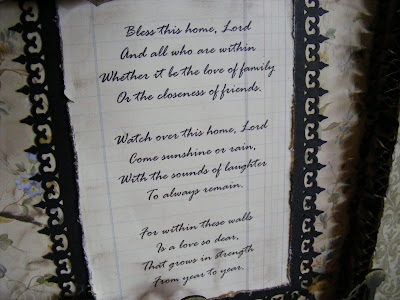 Bless this home, Lord
And all who are within
Whether it be the love of family
Or the closeness of friends.
Watch over this home, Lord
Come sunshine or rain,
With the sounds of laughter
To always remain.
For within these walls
Is a love so dear,
That grows in strength
From year to year.